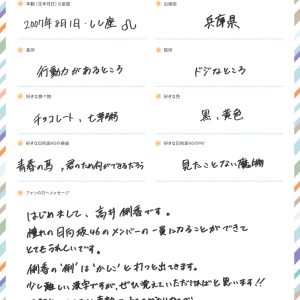 年齢(生年月日)&星座
出身地
2007年8月1日・しし座♌
兵庫県
長所
短所
行動力があるところ
ドジなところ
好きな食べ物
好きな色
チョコレート、七草粥
黒、黄色
好きな日向坂46の楽曲
好きな日向坂46のMV
青春の馬、君のため何ができるだろう
見たことない魔物
ファンの方へメッセージ
はじめまして、高井俐香です。
憧れの日向坂46のメンバーの一員になることができて
とてもうれしいです。
俐香の"俐"は"かしこ"と打つと出てきます。
少し難しい漢字ですが、ぜひ覚えていただければと思います!!